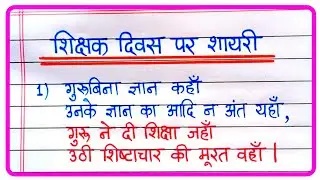 शिक्षक दिवस पर शायरी
1) गुरुबिना ज्ञान कहाँ
उनके ज्ञान का आदि न अंत यहाँ,
गुरू ने दी शिक्षा जहाँ
उठी शिष्टाचार की मूरत वहाँ |